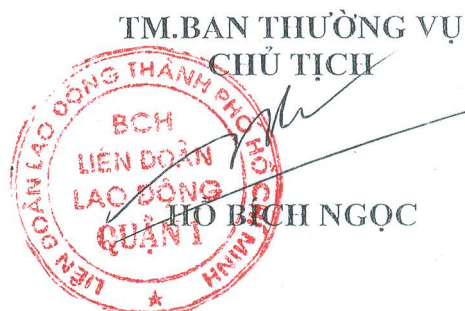 TM.BAN THƯỜNG VỤ
CHỦ TỊCH
LIÊN ĐOÀN LAO ĐỘNG THÀNH PHỐ HỒ CHÍ MINH
BCH
LIÊN ĐOÀN
LAO ĐỘNG
QUẬN 1
HỒ BÍCH NGỌC